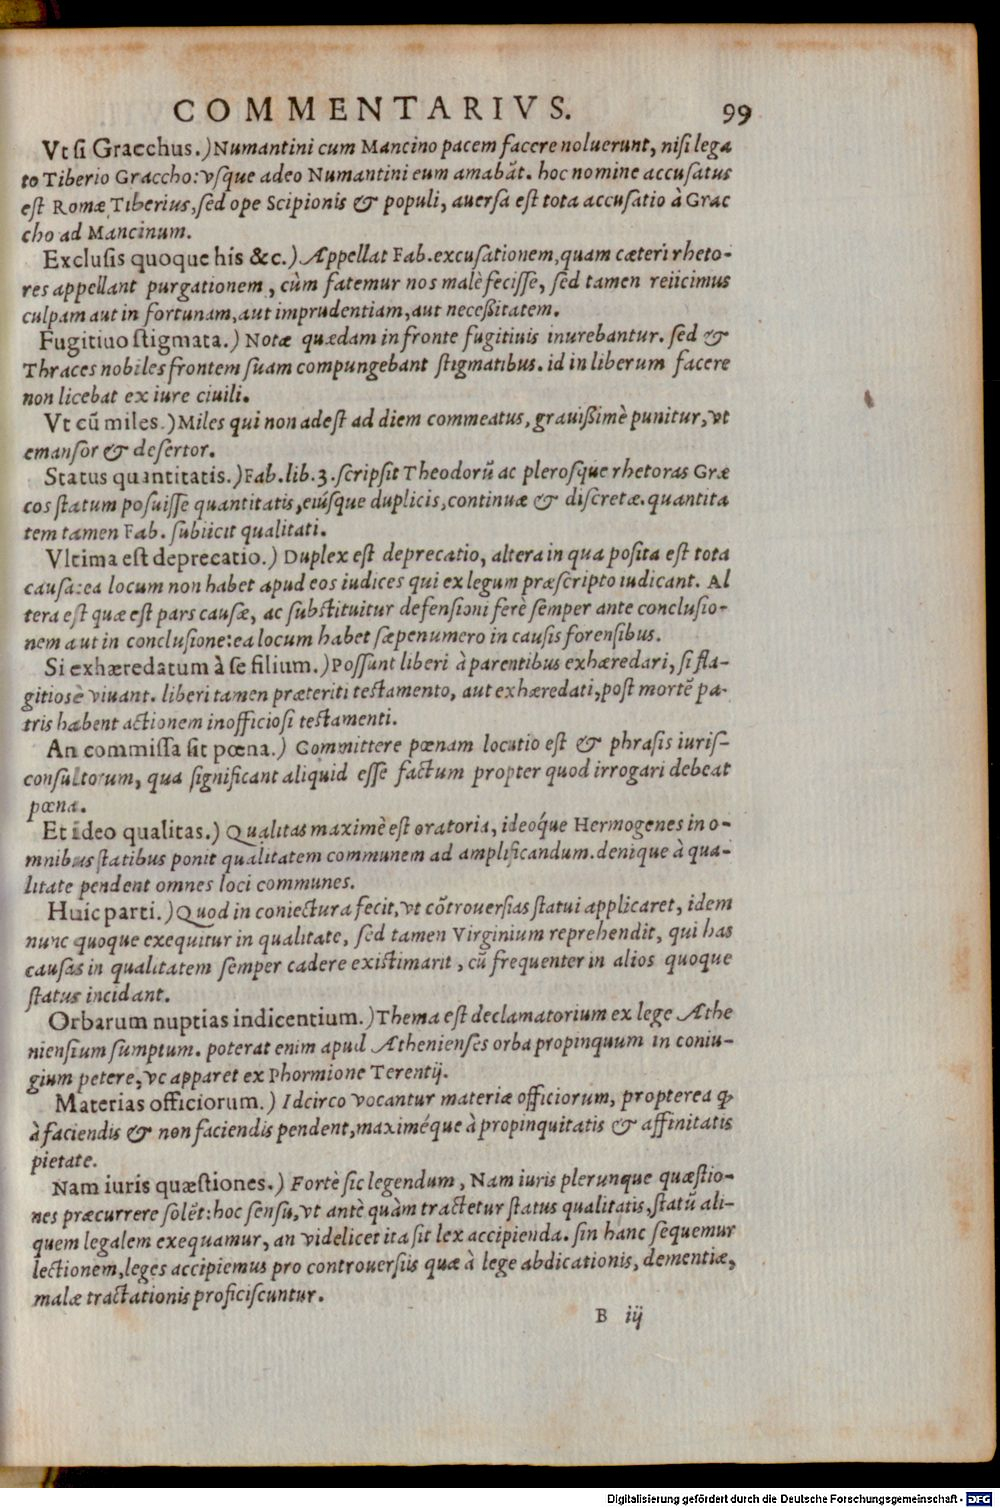 COMMENTARIVS. 99
Vt si Gracchus.) Numantini cum Mancino pacem facere noluerunt, nisi lega
to Tiberio Graccho: vsque adeo Numantini eum amabãt. hoc nomine accusatus
est Romæ Tiberius, sed ope Scipionis & populi, auersa est tota accusatio à Grac
cho ad Mancinum.
Exclusis quoque his &c.) Appellat Fab. excusationem, quam cæteri rheto-
res appellant purgationem, cùm fatemur nos malè fecisse, sed tamen reiicimus
culpam aut in fortunam, aut imprudentiam, aut necessitatem.
Fugitiuo stigmata.) Notæ quædam in fronte fugitiuis inurebantur. sed &
Thraces nobiles frontem suam compungebant stigmatibus. id in liberum facere
non licebat ex iure ciuili.
Vt cũ miles.) Miles qui non adest ad diem commeatus, grauissimè punitur, vt
emansor & desertor.
Status quantitatis.) Fab. lib. 3. scripsit Theodorũ ac plerosque rhetoras Græ
cos statum posuisse quantitatis, eiúsque duplicis, continuæ & discretæ. quantita
tem tamen Fab. subiicit qualitati.
Vltima est deprecatio.) Duplex est deprecatio, altera in qua posita est tota
causa: ea locum non habet apud eos iudices qui ex legum præscripto iudicant. Al
tera est quæ est pars causæ, ac substituitur defensioni ferè semper ante conclusio-
nem aut in conclusione: ea locum habet sæpenumero in causis forensibus.
Si exhæredatum à se filium.) Possunt liberi à parentibus exhæredari, si fla-
gitiosè viuant. liberi tamen præteriti testamento, aut exhæredati, post mortẽ pa-
tris habent actionem inofficiosi testamenti.
An commissa sit pœna.) Committere pœnam locutio est & phrasis iuris-
consultorum, qua significant aliquid esse factum propter quod irrogari debeat
pœna.
Et ideo qualitas.) Qualitas maximè est oratoria, ideóque Hermogenes in o-
mnibus statibus ponit qualitatem communem ad amplificandum. denique à qua-
litate pendent omnes loci communes.
Huic parti.) Quod in coniectura fecit, vt cõtrouersias statui applicaret, idem
nunc quoque exequitur in qualitate, sed tamen Virginium reprehendit, qui has
causas in qualitatem semper cadere existimarit, cũ frequenter in alios quoque
status incidant.
Orbarum nuptias indicentium.) Thema est declamatorium ex lege Athe
niensium sumptum. poterat enim apud Athenienses orba propinquum in coniu-
gium petere, vt apparet ex Phormione Terentij.
Materias officiorum.) Idcirco vocantur materiæ officiorum, propterea ꝙ
à faciendis & non faciendis pendent, maximéque à propinquitatis & affinitatis
pietate.
Nam iuris quæstiones.) Fortè sic legendum, Nam iuris plerunque quæstio-
nes præcurrere solẽt: hoc sensu, vt antè quàm tractetur status qualitatis, statũ ali-
quem legalem exequamur, an videlicet ita sit lex accipienda. sin hanc sequemur
lectionem, leges accipiemus pro controuersiis quæ à lege abdicationis, dementiæ,
malæ tractationis proficiscuntur.
B iij
Digitalisierung gefördert durch die Deutsche Forschungsgemeinschaft - DFG